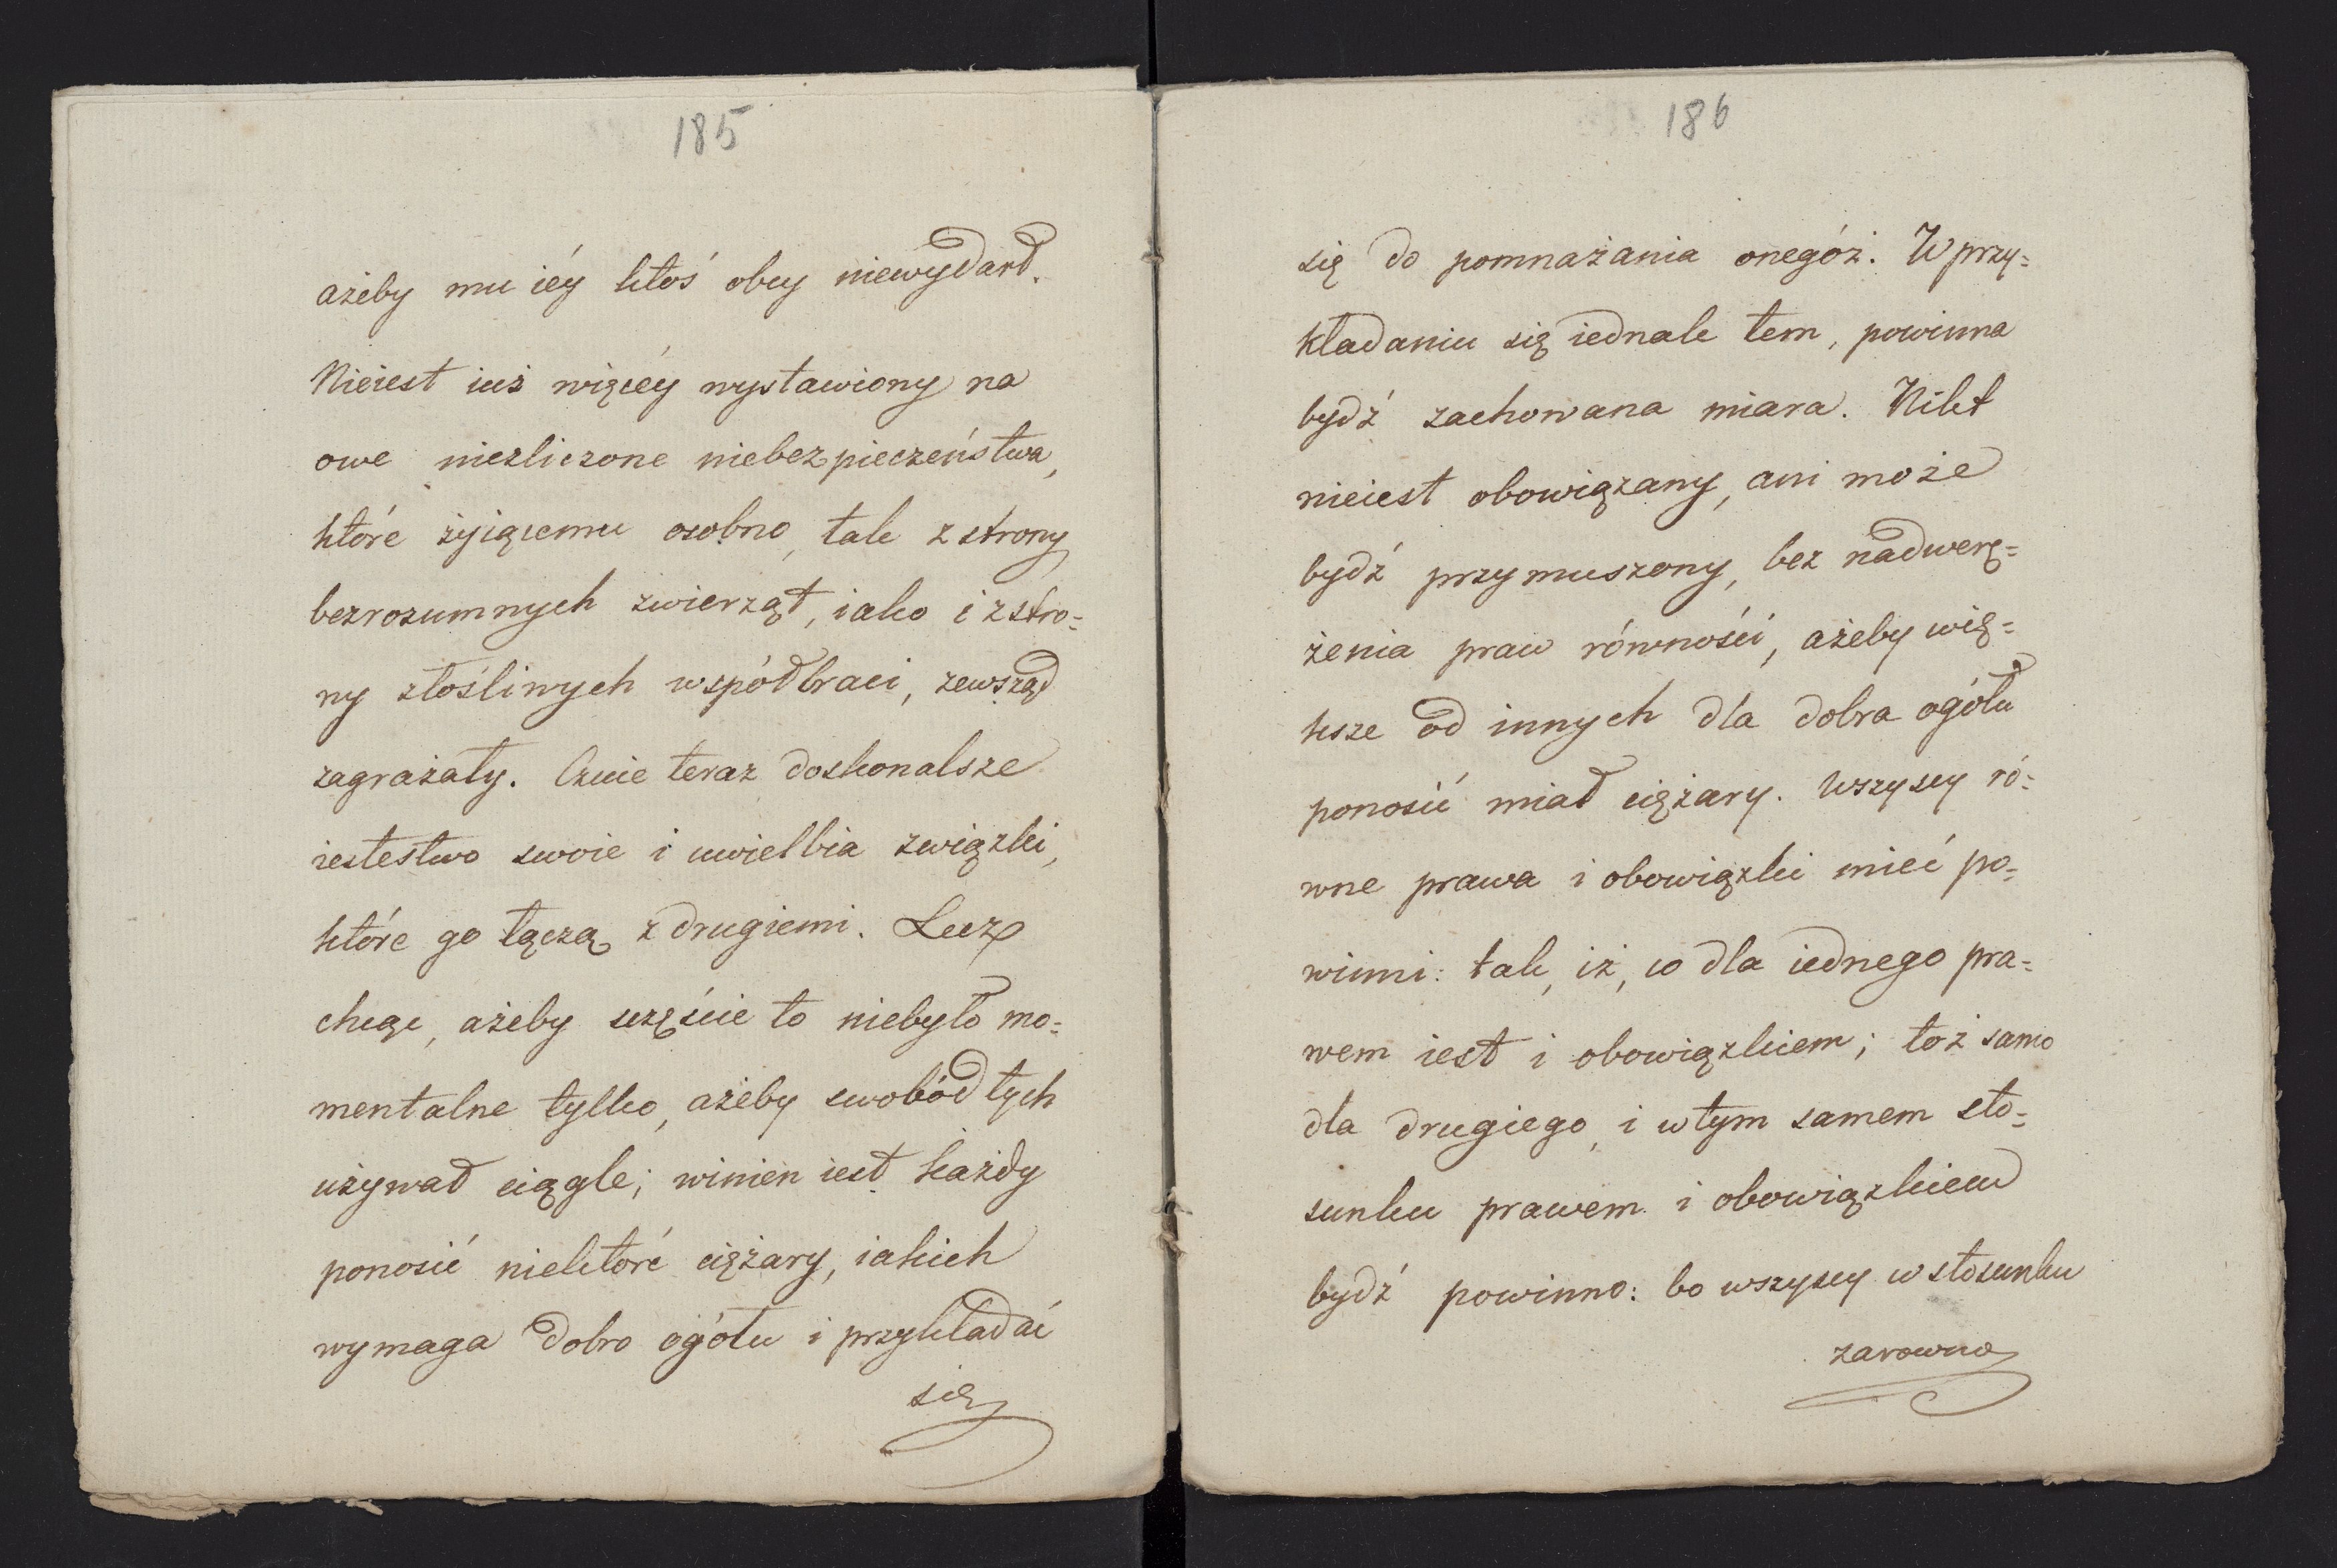 185
ażeby mu iéy ktoś obcy niewydarł.
Nieiest iuż więcéy wystawiony na
owe niezliczone niebezpieczeństwa,
które żyiącemu osobno, tak z strony
bezrozumnych zwierząt, iako i z stro=
ny złośliwych współbraci, zewsząd
zagrażały. Czuie teraz doskonalsze
iestestwo swoie i uwielbia związki,
które go łączą z drugiemi. Lecz
chcąc, ażeby szczęście to niebyło mo=
mentalne tylko, ażeby swobód tych
używał ciągle; winien iest każdy
ponosić niektóré ciężary, iakich
wymaga dobro ogółu i przykładać
się
186
się do pomnażania onegóż. W przy=
kładaniu się iednak tem, powinna
bydź zachowana miara. Nikt
nieiest obowiązany, ani może
bydź przymuszony, bez nadwerę=
żenia praw równości, ażeby wię=
ksze od innych dla dobra ogółu
ponosić miał ciężary. Wszyscy ró=
wne prawa i obowiązki mieć po=
winni: tak, iż, co dla iednego pra=
wem iest i obowiązkiem; toż samo
dla drugiego, i w tym samem sto=
sunku prawem i obowiązkiem
bydź powinno: bo wszyscy w stosunku
zarowno